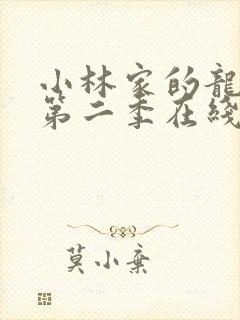 小林家的龍
第二季在綫
莫小棄